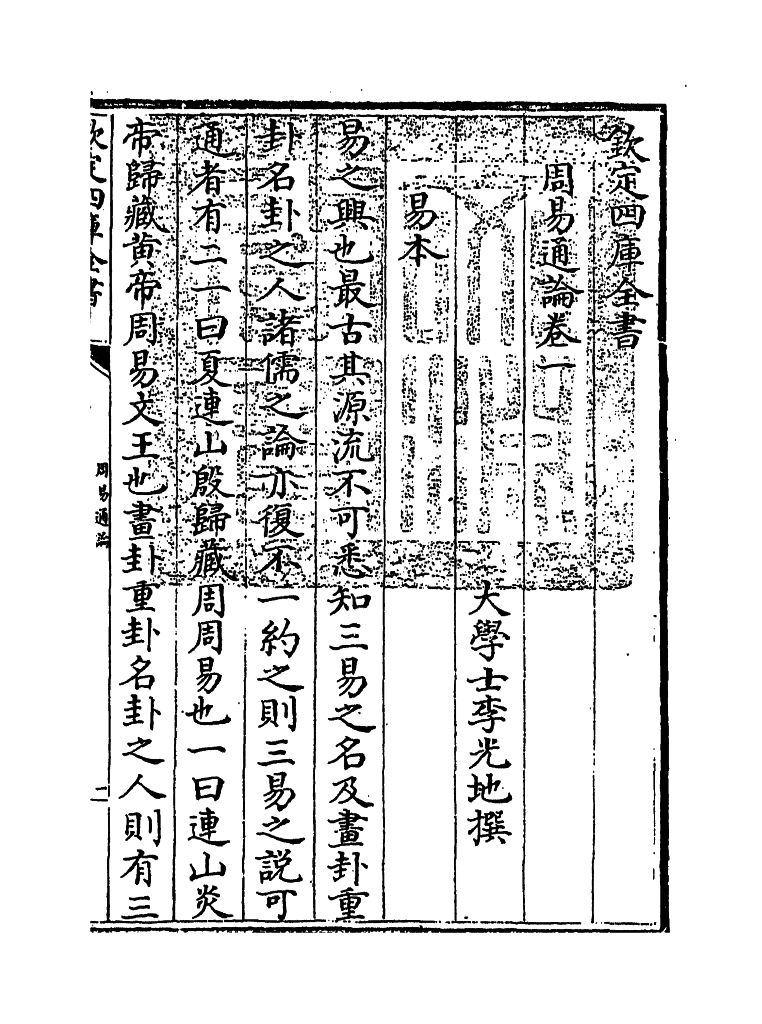 欽定四庫全書
周易通論卷一
大學士李光地撰
易本
易之興也最古其源流不可悉知三易之名及畫卦重
卦名卦之人諸儒之論亦復不一約之則三易之說可
通者有二一曰夏連山殷歸藏周周易也一曰連山炎
帝歸藏黄帝周易文王也畫卦重卦名卦之人則有三
欽定四庫全書
周易通論